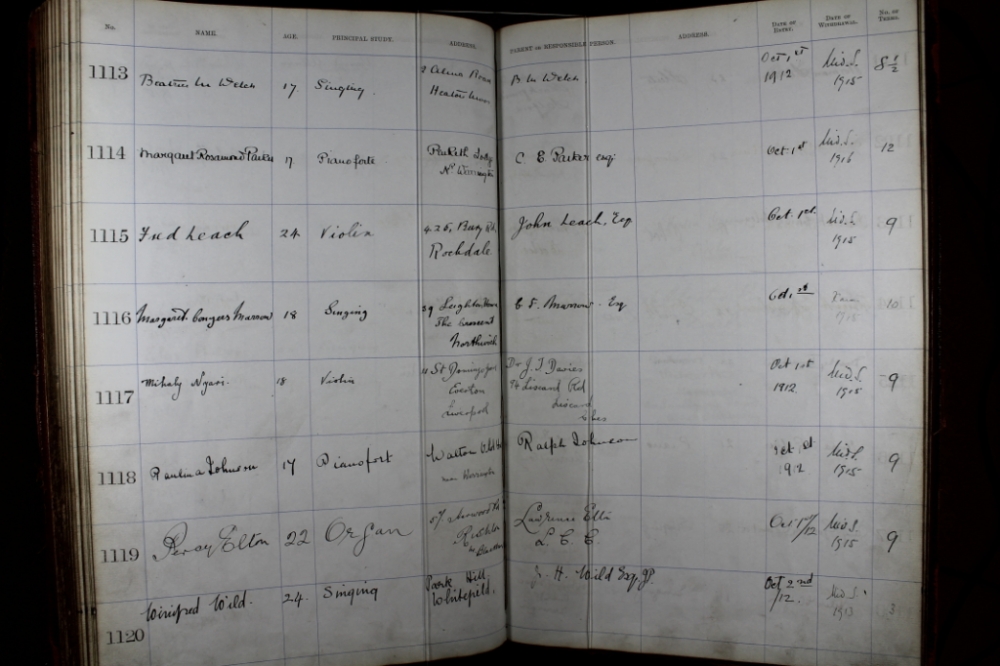 No. NAME. AGE. PRINCIPAL STUDY. ADDRESS. PARENT OR RESPONSIBLE PERSON. ADDRESS. DATE OF ENTRY. DATE OF WITHDRAWAL. NO. OF TERMS.
1113 Beatrice M Welch 17. Singing. B M Welch Oct 1st 1912 Mid.S. 1915 8 1/2
1114 Margaret Rosamond Parker 17 Pianoforte. Nr Warrington C E Parker esq. Oct 1st Mid.S. 1916 12
1115 Fred Leach 24 Violin 425, Bury Rd, Rochdale. John Leach, Esq Oct 1st Mid.S. 1915 9
1116 Margaret Congers Marrow 18 Singing 29 The Crescent Northwich Marrow. Esq Oct 1st 1915 10
1117 Mihaly Nyari. 18 Violin Everton Liverpool Dr J. T Davies Liscard Rd Liscard Oct 1st 1912 Mid.S. 1915 9
1118 Paulina Johnson 17 Pianofort Ralph Johnson Oct 1st 1912 Mid.S. 1915 9
1119 Percy Elton 22 Organ Oct 1st/12 Mid S. 1915 9
1120 Winifred Wild. 24. Singing Park Hill, Whitefield. H. Wild Esq. JP. Oct 2nd /12. Mid.S. 1913 3